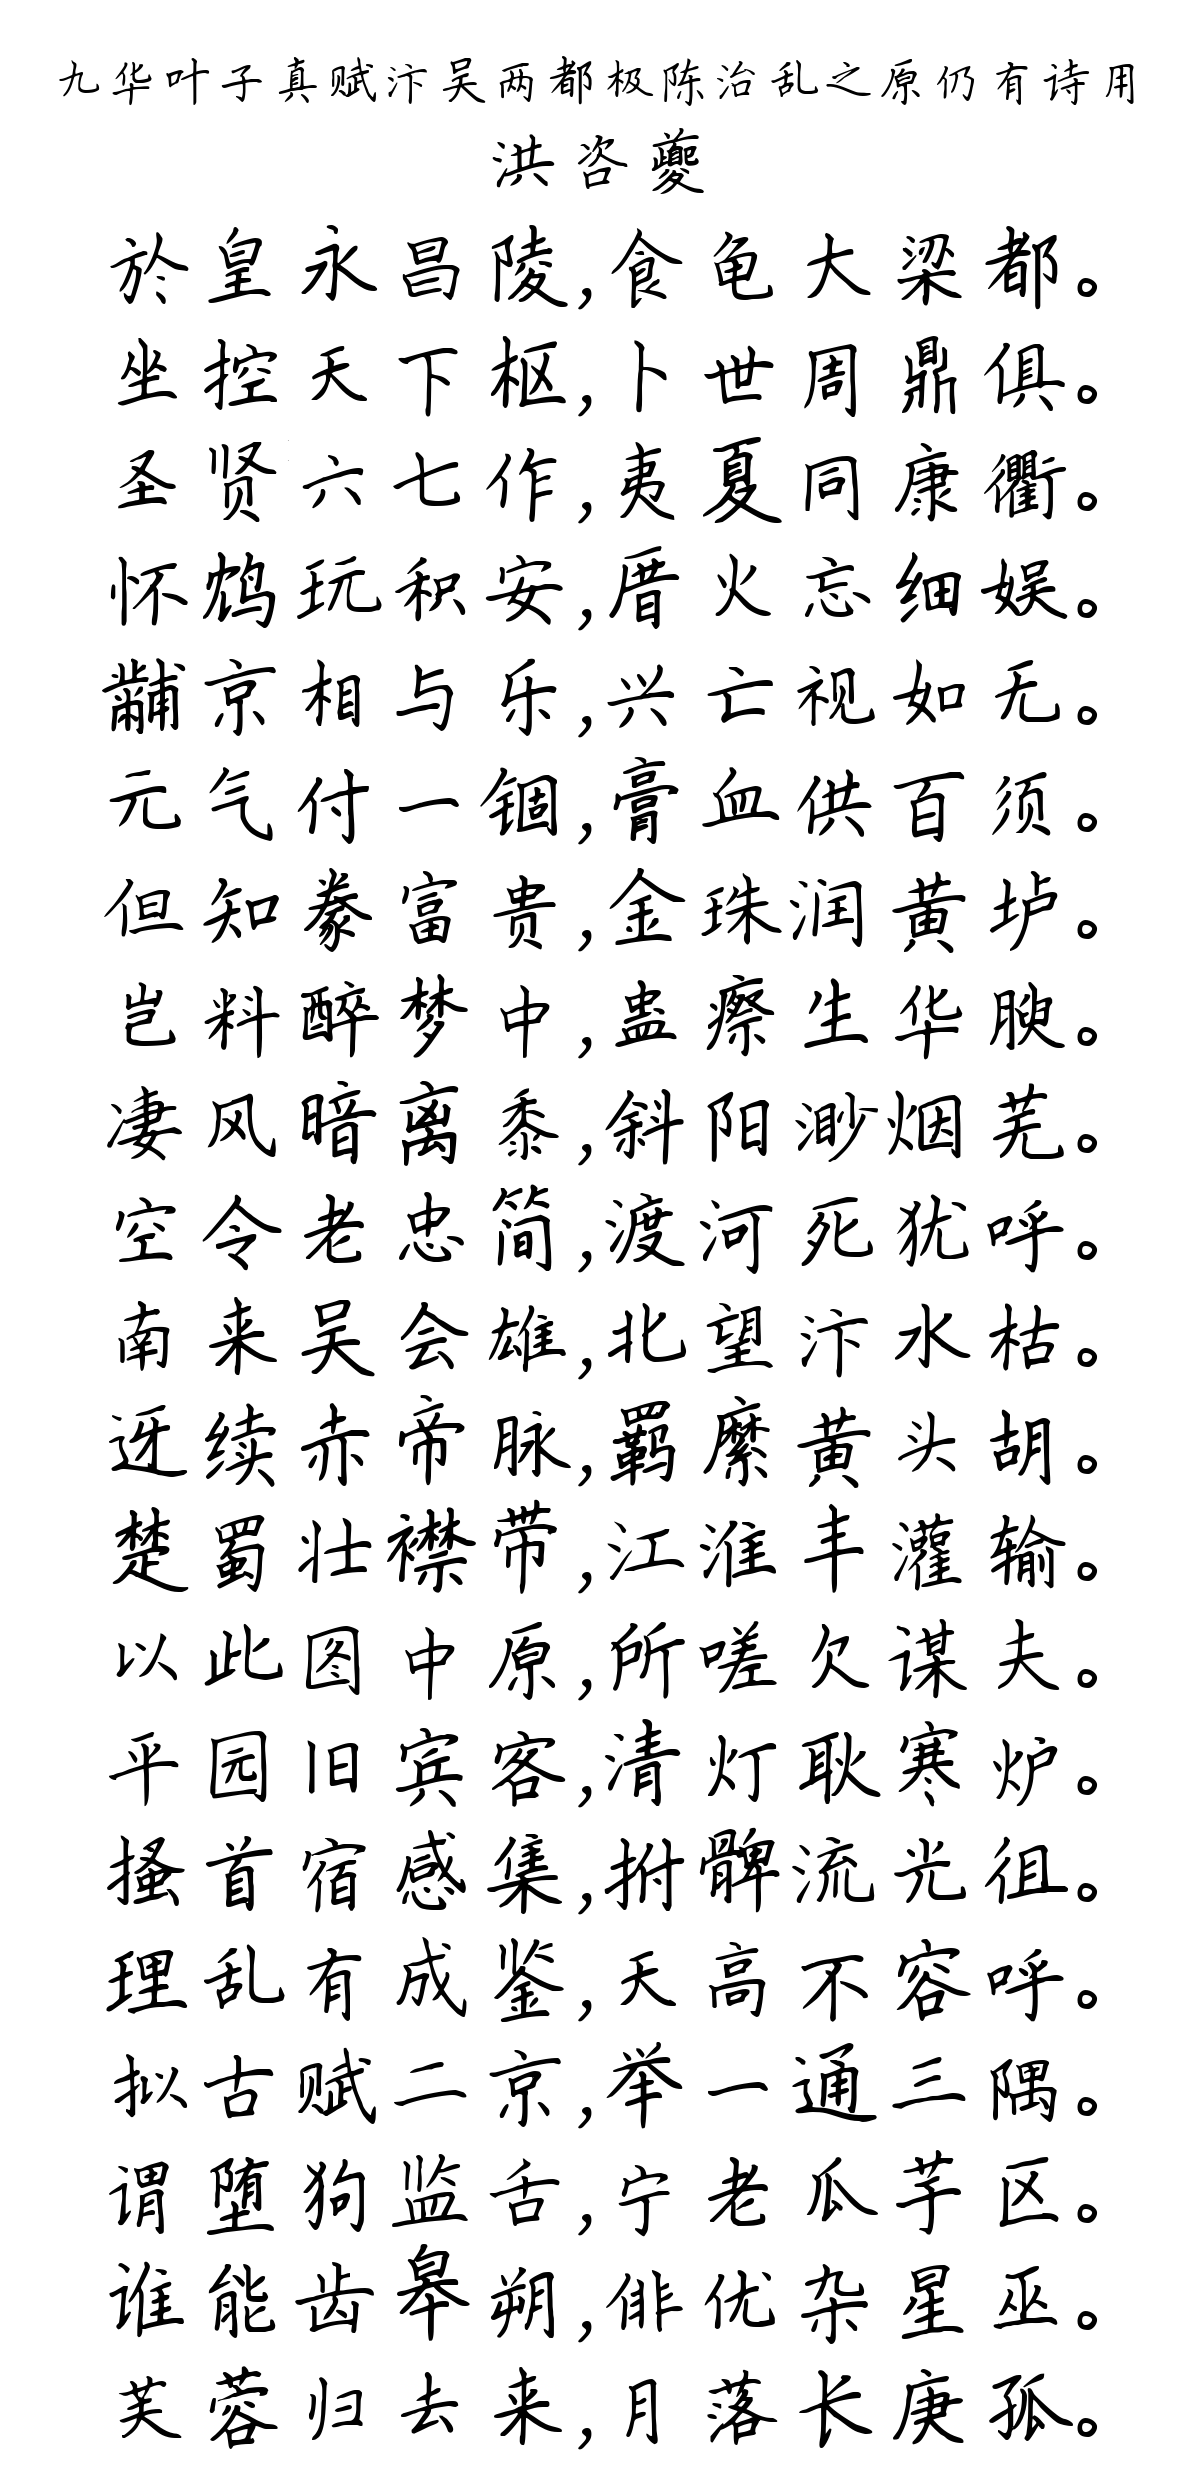 九华叶子真赋汴吴两都极陈治乱之原仍有诗用
洪咨夔
於皇永昌陵,食龟大梁都。
坐控天下枢,卜世周鼎俱。
圣贤六七作,夷夏同康衢。
怀鸩玩积安,厝火忘细娱。
黼京相与乐,兴亡视如无。
元气付一锢,膏血供百须。
但知豢富贵,金珠润黄垆。
岂料醉梦中,蛊瘵生华腴。
凄风暗离黍,斜阳渺烟芜。
空令老忠简,渡河死犹呼。
南来吴会雄,北望汴水枯。
迓续赤帝脉,羁縻黄头胡。
楚蜀壮襟带,江淮丰灌输。
以此图中原,所嗟欠谋夫。
平园旧宾客,清灯耿寒炉。
搔首宿感集,拊髀流光徂。
理乱有成鉴,天高不容呼。
拟古赋二京,举一通三隅。
谓堕狗监舌,宁老瓜芋区。
谁能齿皋朔,俳优杂星巫。
芙蓉归去来,月落长庚孤。